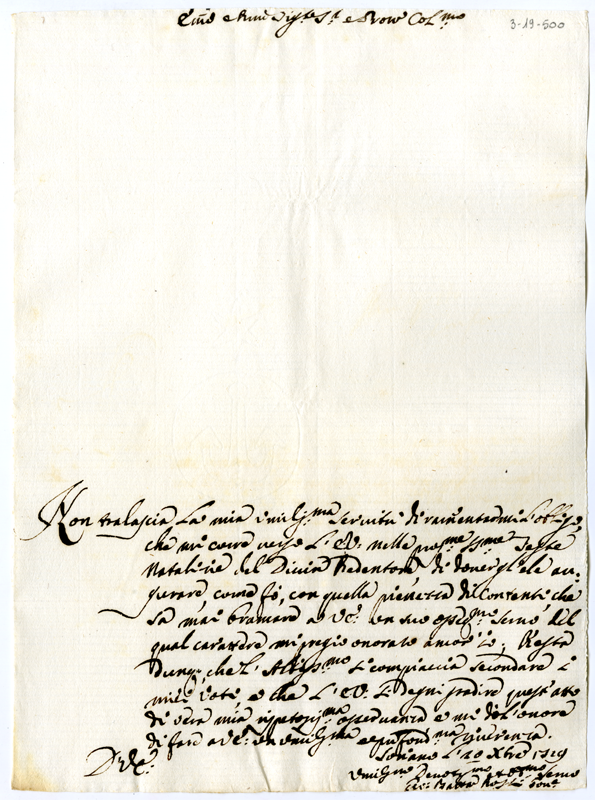 3-19-500
Emo e Rmo Sig.re Sig.re e Prone Col.mo
Non tralascia la mia umiliss.ma servitù di ramentarmi l'obligo,
che mi corre verso l'E.V. nelle pros.me SS.me Feste
Natalizie del Divin Redentore di dovergliele au-
gurare come fò, con quella pienezza di Contenti che
sa mai bramare a V.E. un suo osseq.mo Servo del
qual carattere mi pregio onorato ancor io; Resta
Dunq. che l'Altiss.mo si compiaccia secondare i
miei voti e che l'E.V. si degni gradire quest'atto
di vera mia rispettosiss.ma osservanza e mi dia l'onore
di fare a V.E. un umiliss.ma e profond.ma riverenza.
D. V.E. Soriano li 20 Xbre 1719
Umiliss.mo Devotiss.mo et Servo
Gio: Batta